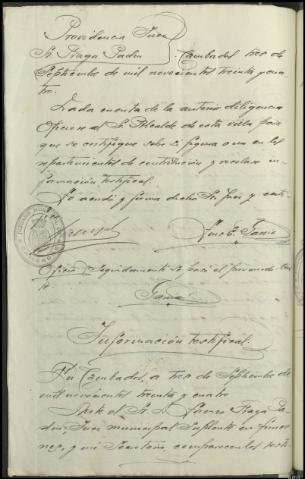 Providencia Juez
Sr. Fraga Padin } Cambados tres de
Septiembre de mil novecientos treinta y cua
tro.
Dada cuenta de la anterior diligencia
Oficiese al Sr. Alcalde de esta villa para
que se certifique sobre si figura o no en los
repartimientos de contribución y recibase in-
formación testifical.
Lo acordó y firma dicho Sr. Juez y certi-
Información testifical.
En Cambados, a tres de Septiembre de
mil novecientos treinta y cuatro
Ante el Sr. D. Fraga Pa-
din, Juez municipal Suplente en funcio
nes, y mi Secretario, comparecen los testi-